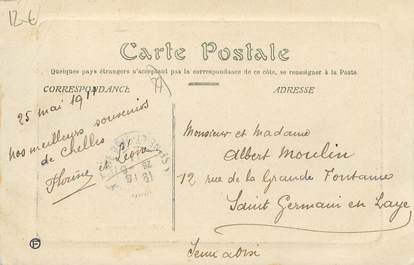 12-6
Carte Postale
Quelques pays étrangers n'acceptant pas la correspondance de ce côté, se renseigner à la Poste.
CORRESPONDANCE
ADRESSE
25 mai 1911
nos meilleurs souvenirs
de Chelles
et Léon
Monsieur et Madame
Albert Moulin
12 rue de la Grande Fontaine
Saint Germain en Laye
Seine et Oise